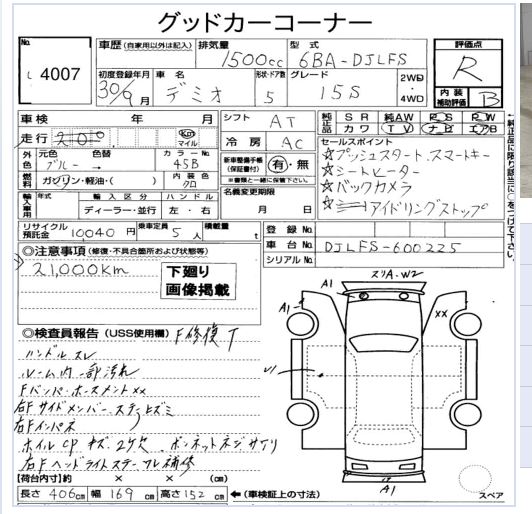 グッドカーコーナー
No.
4007
車歴 (自家用以外は記入)
排気量
1500cc
型式
6BA-DJLFS
評価点
R
初度登録年月
30/9月
車名
デミオ
形状・ドア数
5
グレード
15S
2WD
4WD
内装補助評価
B
車検 年 月
シフト
AT
純正品
SR 純AW PS PW
カワ TV ナビ エアB
走行
km
マイル
冷房
AC
セールスポイント
☆プッシュスタート.スマートキー
☆シートヒーター
☆バックカメラ
☆アイドリングストップ
外色
元色 色替
ブルー →
カラーNo.
45B
新車整備手帳
(保証書付)
有・無
※書類と一緒に保管下さい。
燃料
ガソリン・軽油・( )
内装色
クロ
名義変更期限
月 日
輸入車用
年式
輸入区分
ディーラー・並行
ハンドル
左・右
登録No.
リサイクル預託金
10040円
乗車定員
5人
積載量
t
車台No.
DJLFS-600225
シリアルNo.
◎注意事項 (修復・不具合箇所および状態等)
21,000km
下廻り
画像掲載
◎検査員報告 (USS使用欄)
F修復 T
ハンドルスレ
ルーム内一部汚れ
Fバンパ・ホースメント××
右Fサイドメンバー.ステー上ズミ
右Fインパネ
ホイルCP キズ.2ケ欠.ボンネットネジサワリ
右Fヘッドライトステー フレ補修
【荷台内寸】約 × × (cm)
長さ 406cm 幅 169cm 高さ152cm ←(車検証上の寸法)
A1
A1
XX
U1
A1
スペア
純正品に限り該当に○をつけて下さい。